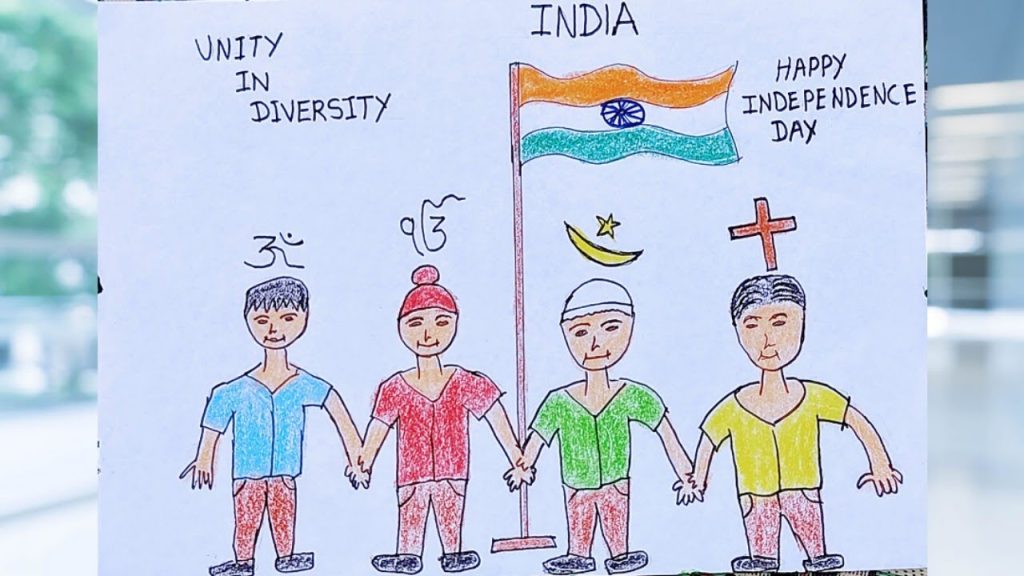 INDIA
UNITY
IN
DIVERSITY
HAPPY
INDEPENDENCE
DAY
ॐ
ੴ